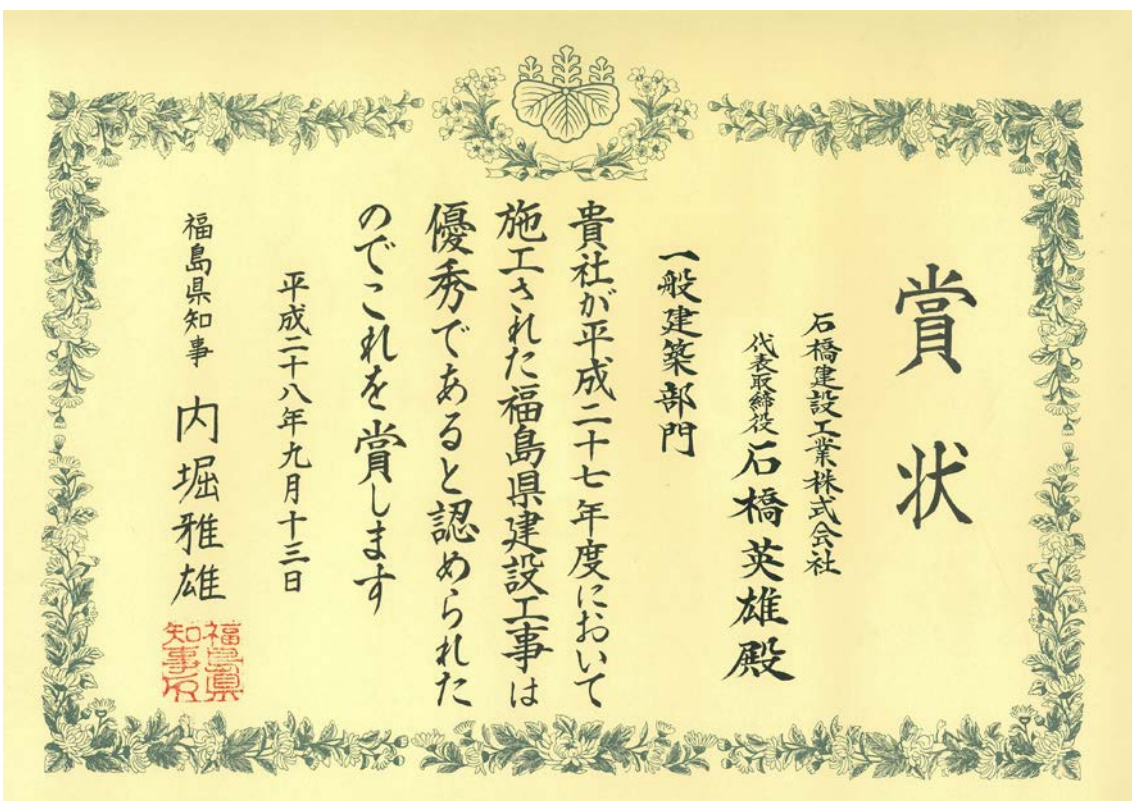 賞状
石橋建設工業株式会社
代表取締役 石橋英雄殿
一般建築部門
貴社が平成二十七年度において
施工された福島県建設工事は
優秀であると認められた
のでこれを賞します
平成二十八年九月十三日
福島県知事 内堀雅雄
福島縣
知事印